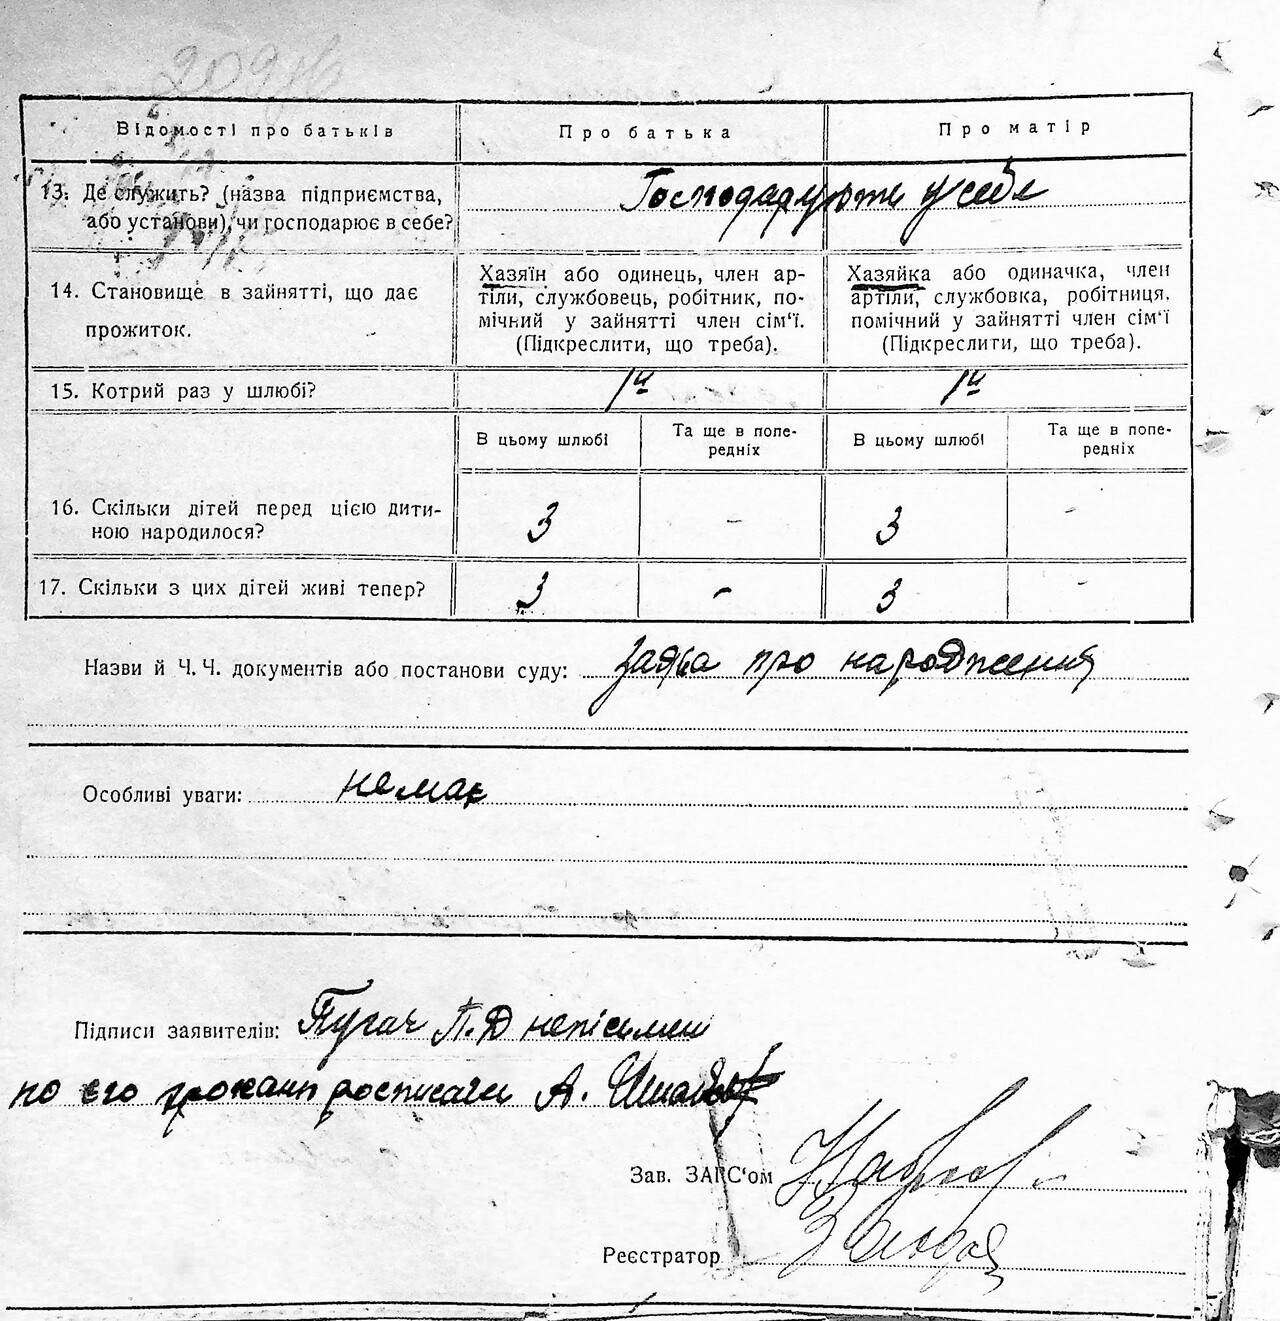 Відомості про батьків
Про батька
Про матір
13. Де служить? (назва підприємства,
або установи), чи господарює в себе?
Господарюючи у себе
14. Становище в зайнятті, що дає
прожиток.
Хазяїн або одинець, член ар-
тіли, службовець, робітник, по-
мічний у зайнятті член сім'ї.
(Підкреслити, що треба).
Хазяйка або одиначка, член
артіли, службовка, робітниця,
помічний у зайнятті член сім'ї
(Підкреслити, що треба).
15. Котрий раз у шлюбі?
1й
1й
В цьому шлюбі
Та ще в попе-
редніх
В цьому шлюбі
Та ще в попе-
редніх
16. Скільки дітей перед цією дити-
ною народилося?
3 - 3 -
17. Скільки з цих дітей живі тепер? 3 - 3 -
Назви й Ч. Ч. документів або постанови суду: заява про народження
Особливі уваги: немає
Підписи заявителів: Пугач П. Д
по его росписався А.
Зав. ЗАГС'ом
Реєстратор